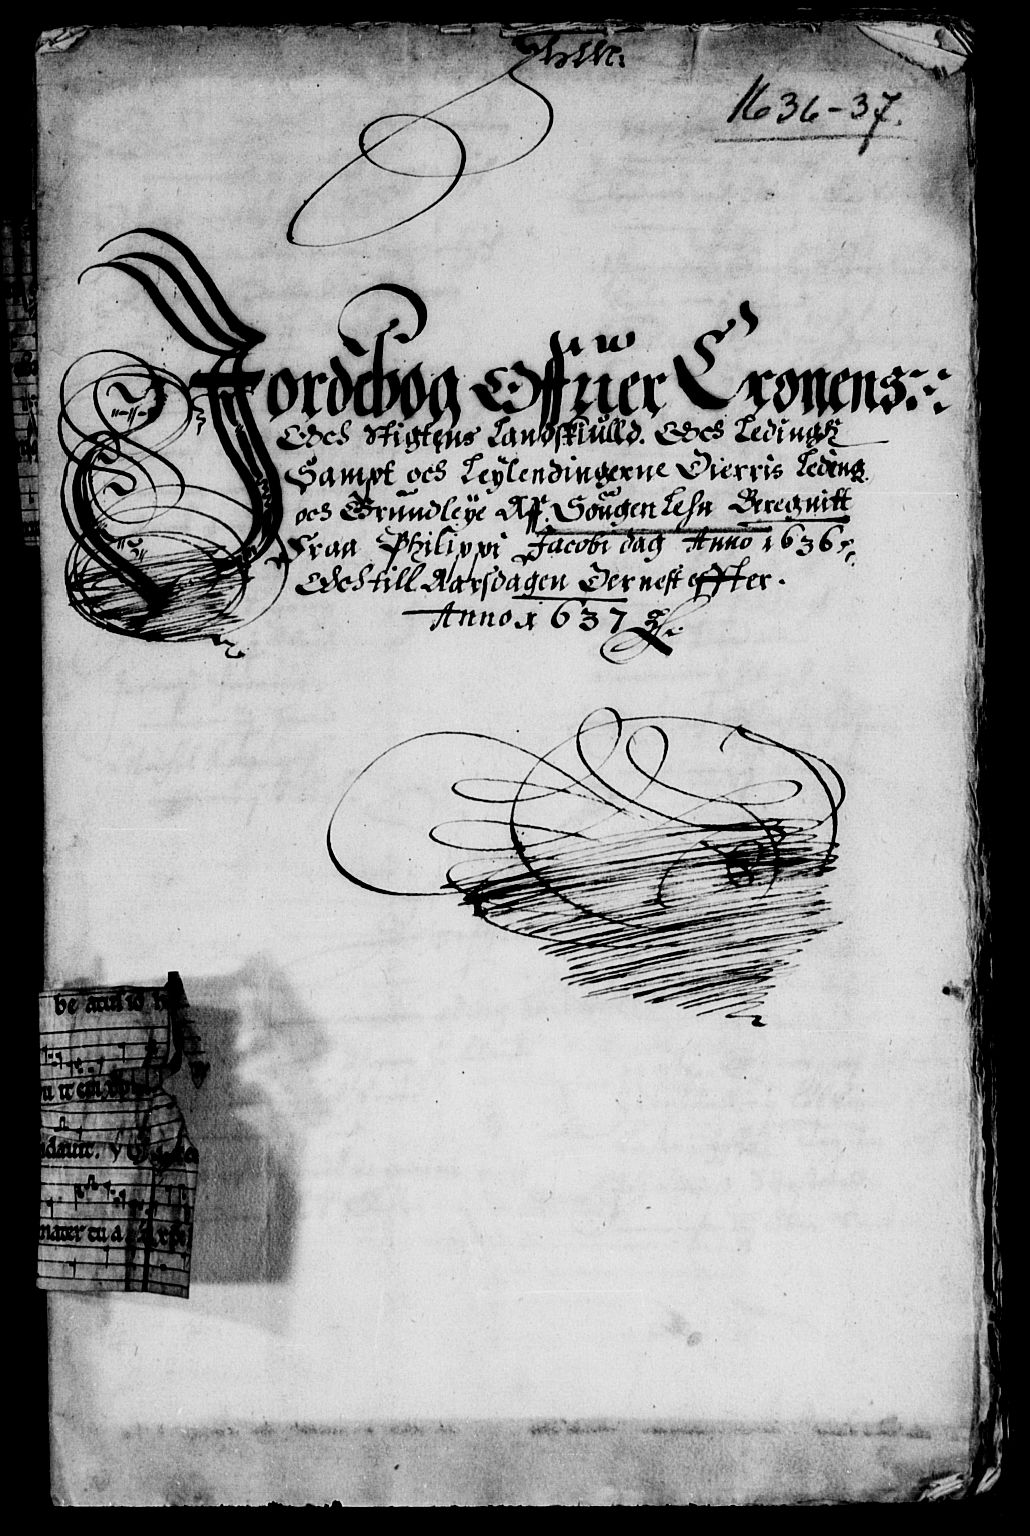 1636-37.
Jordebog Offuer Cronens
Och Stigtens Landskiulld. Och Ledingh
Sampt och Leylendingerne Dierris Leding
och Grundleye Aff Sougen Lehn Beregnitt
Fraa Philippi Jacobi dag Anno 1636
Och till Aarsdagen Dernest effter.
Anno 1637
be
dauit.
mater tu a